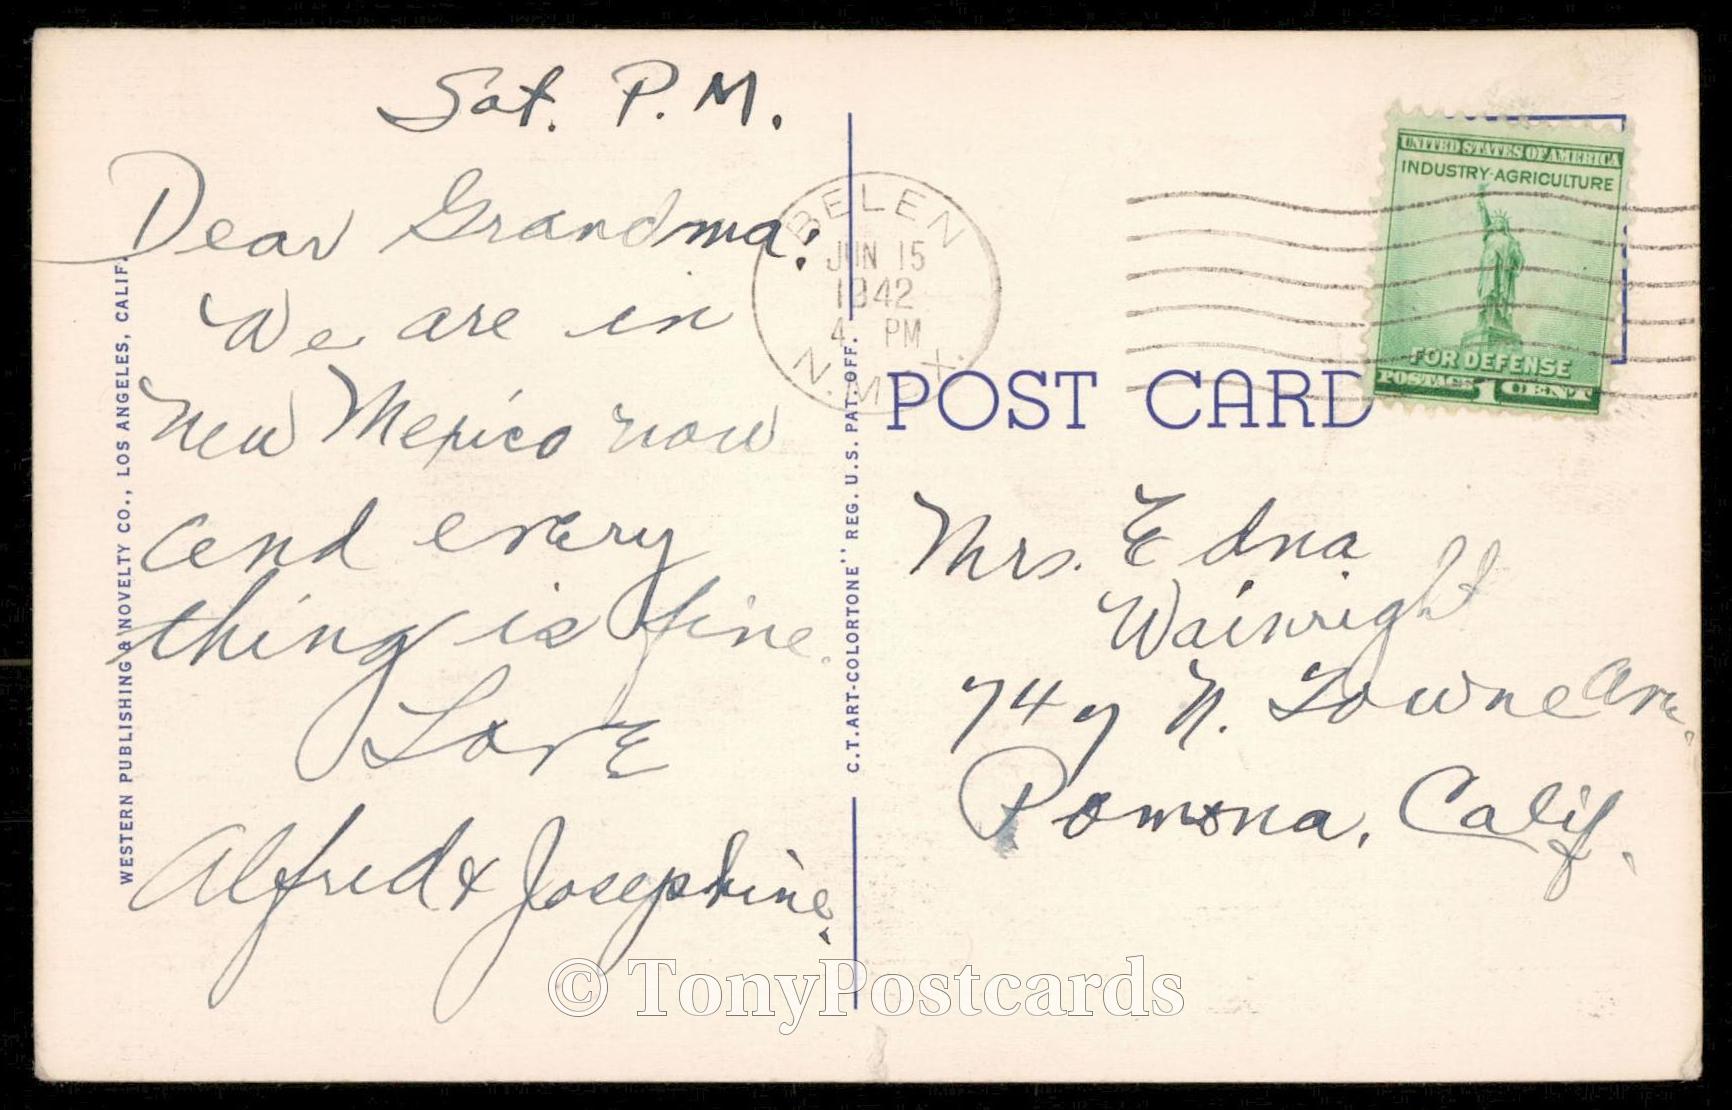 Sat. P.M.
Dear Grandma:
We are in
New Mexico now
and every
thing is fine.
Love
Alfred & Josephine.
WESTERN PUBLISHING & NOVELTY CO., LOS ANGELES, CALIF.
C.T. ART-COLORTONE" REG. U.S. PAT. OFF.
BELEN
JUN 15
1942
4 PM
N.MEX.
POST CARD
UNITED STATES OF AMERICA
INDUSTRY-AGRICULTURE
FOR DEFENSE
POSTAGE 1 CENT
Mrs. Edna
Wainright
747 N. Towne Ave.
Pomona, Calif.
© TonyPostcards